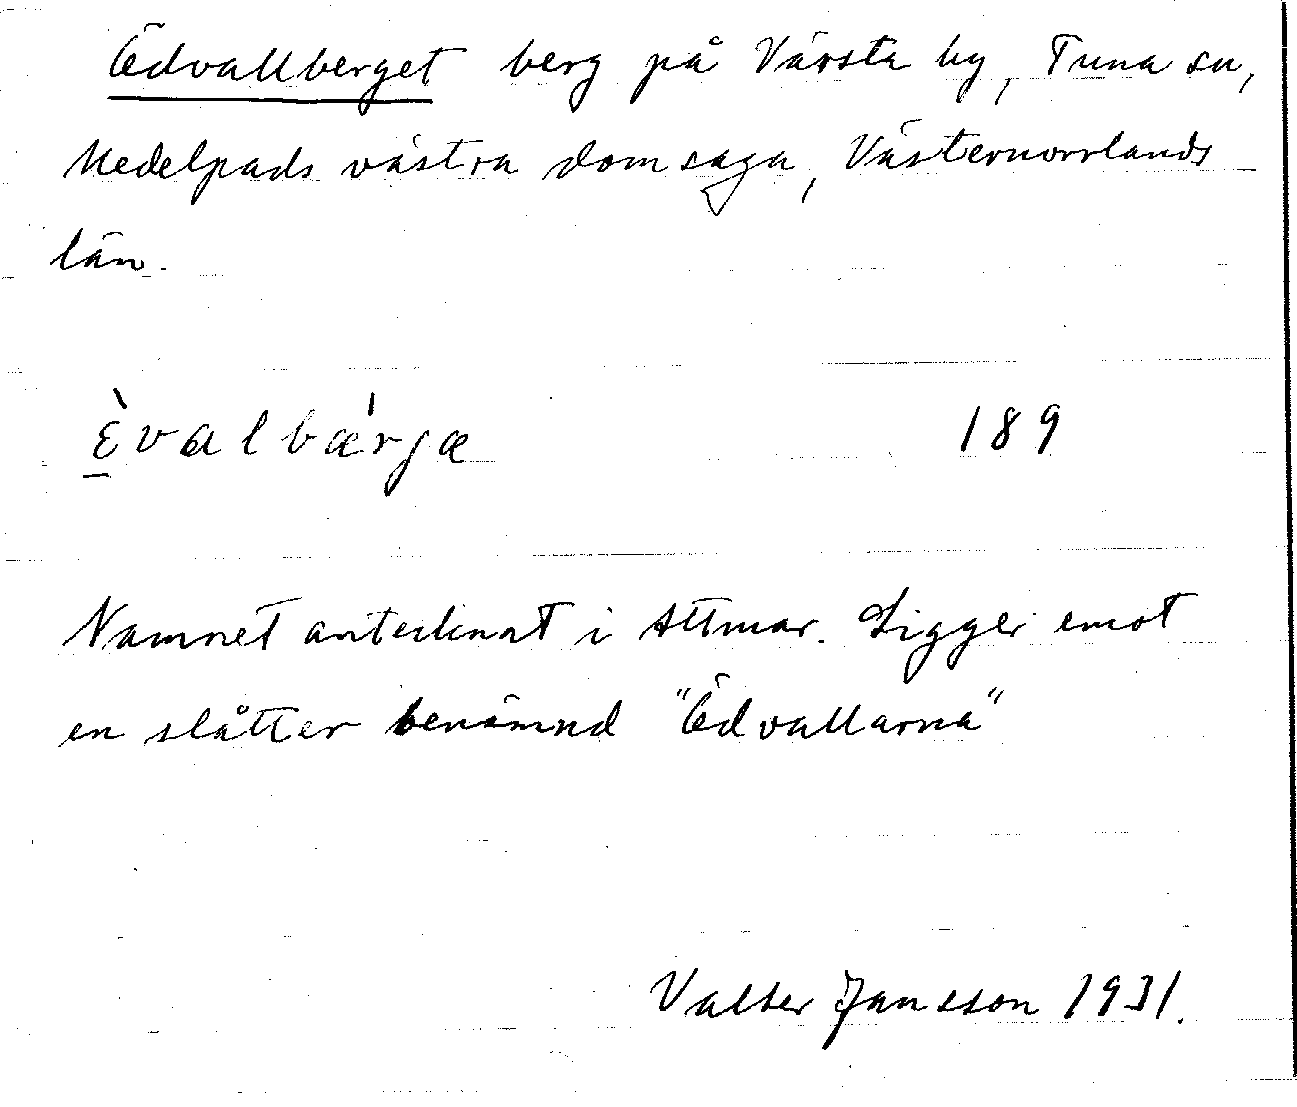 Ödvallberget berg på Värsta by, Tuna sn,
Medelpads västra domsaga, Västernorrlands
län.
ɛ̀valbær̍jæ 189
Namnet antecknat i Attmar. Ligger emot
en slåtter benämnd "Ödvallarna"
Valter Jansson 1931.